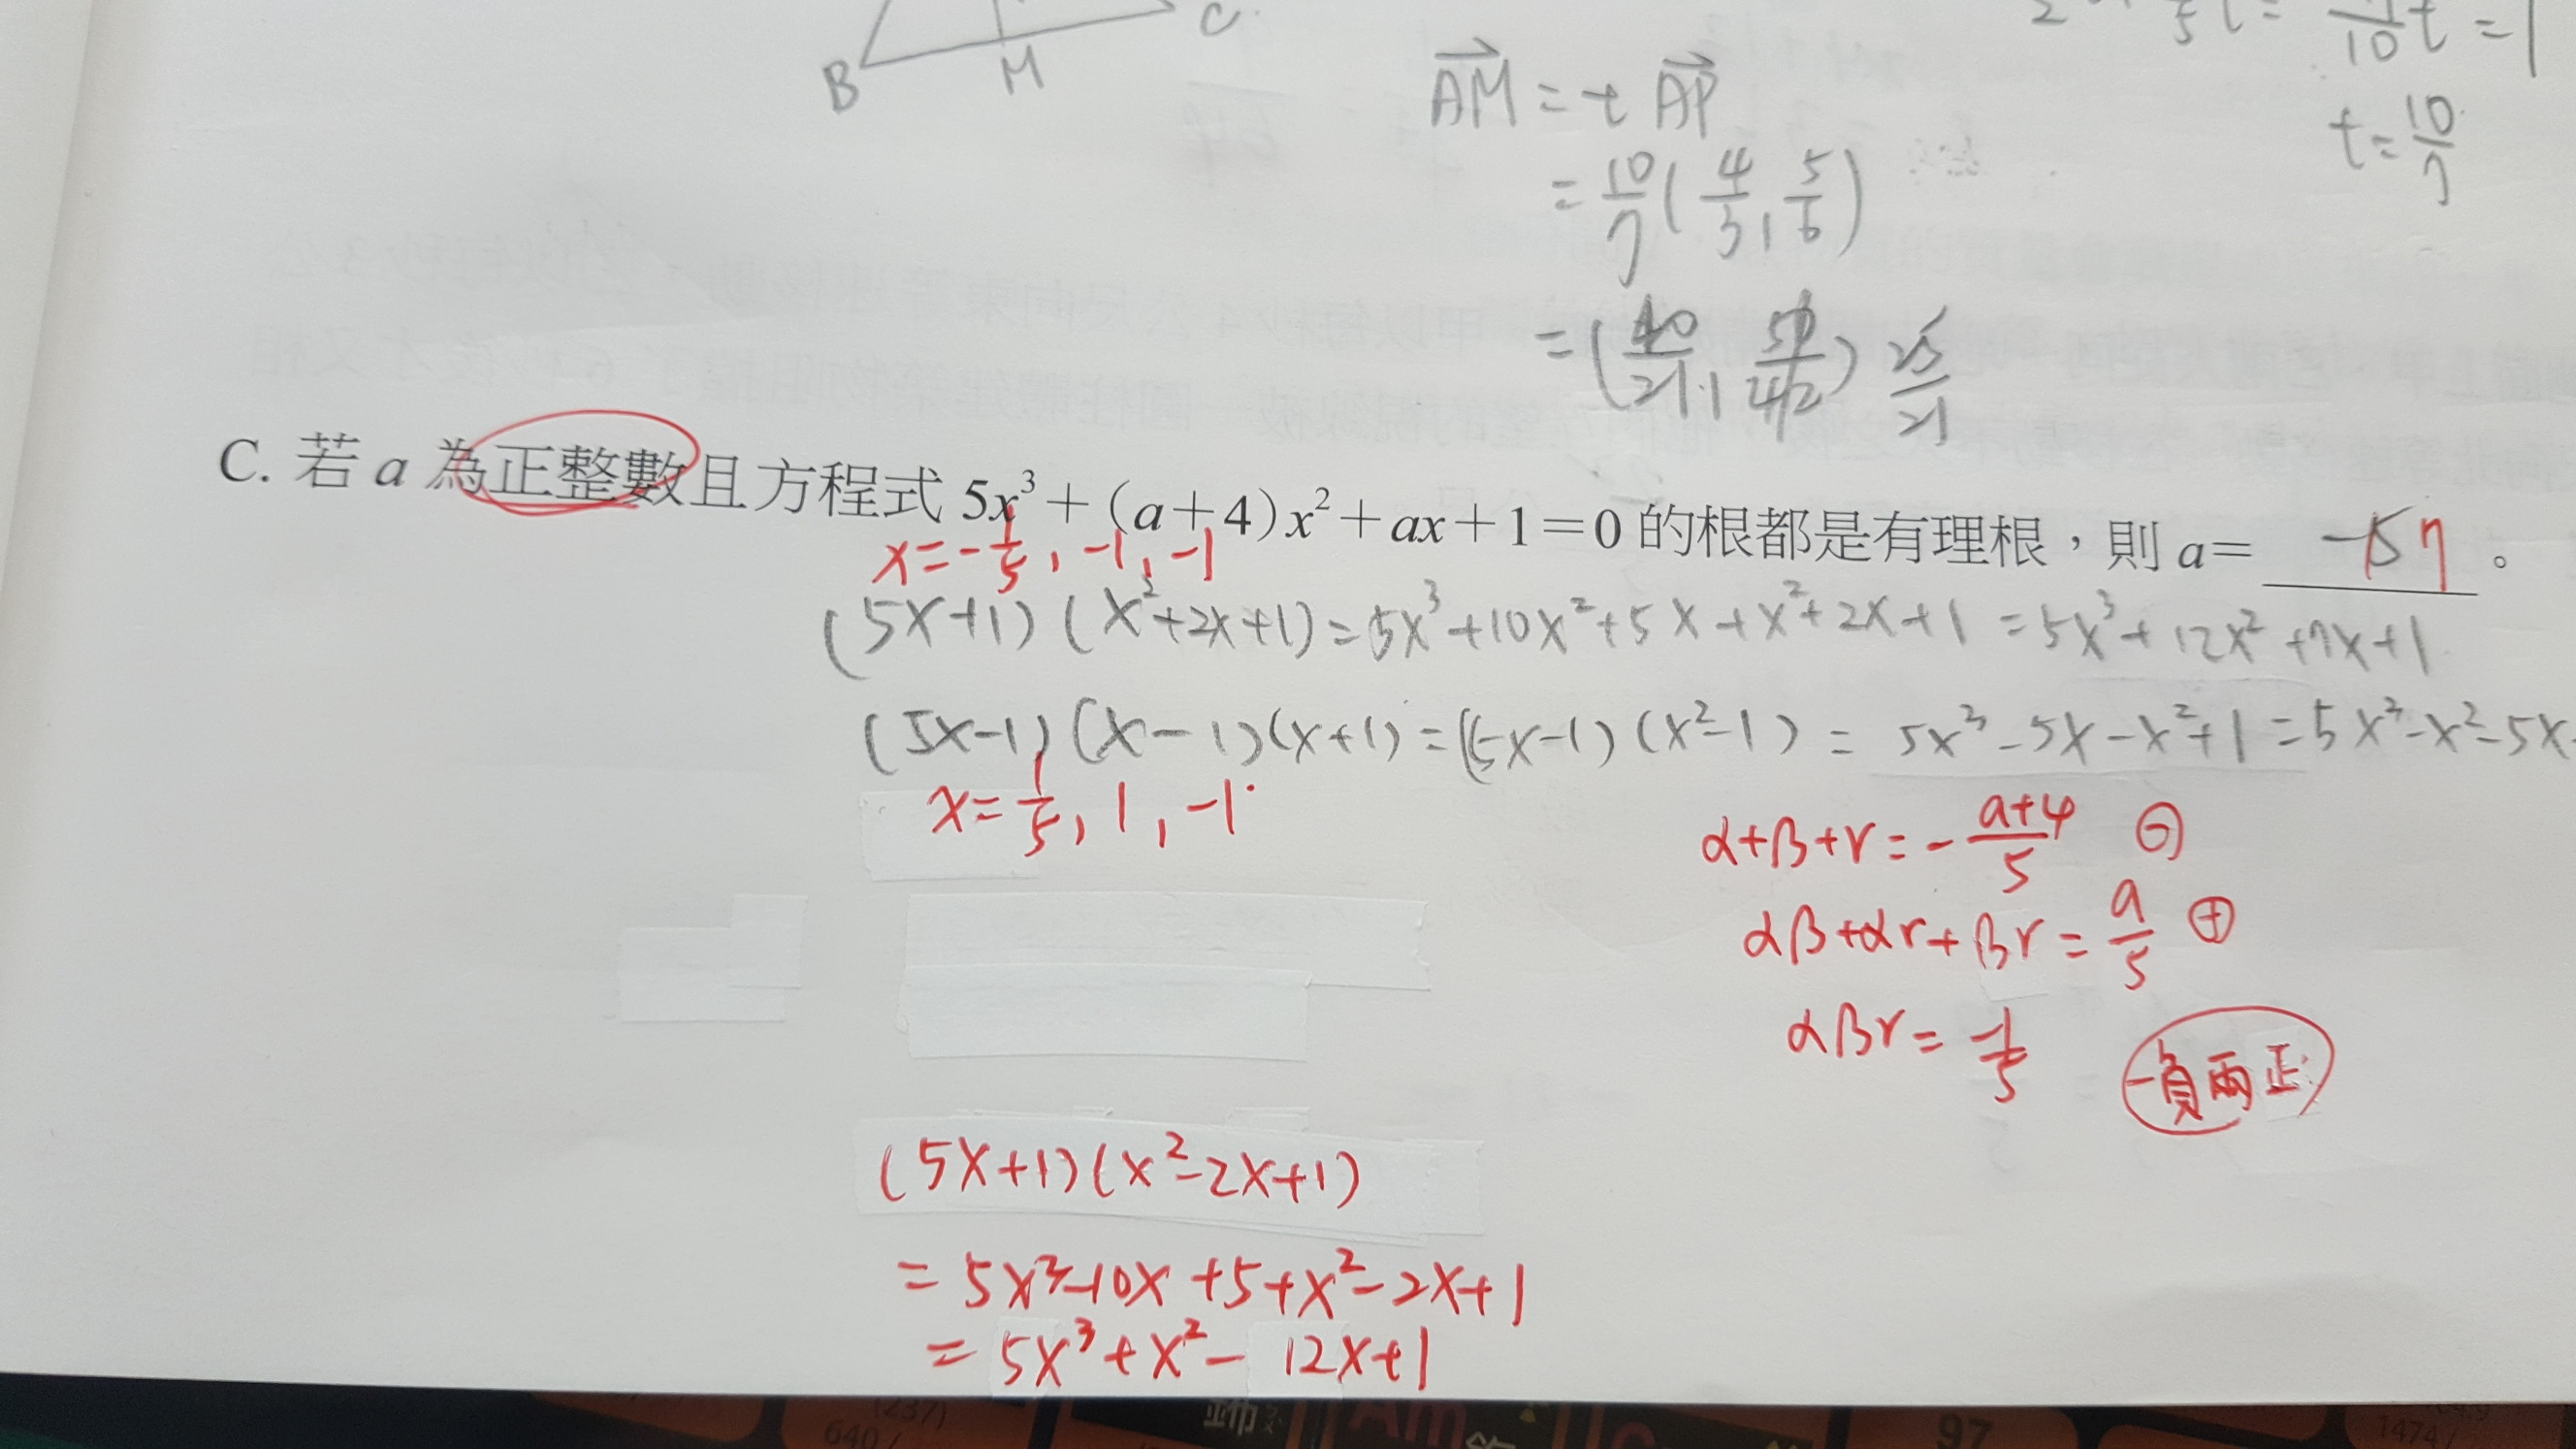 B
M
C
AM = t AP
= 10/7 (4/3, 5/6)
= (40/21, 50/42) 25/21
10
t = 1
t = 10/7
C. 若 a 為正整數且方程式 5x³+(a+4)x²+ax+1=0 的根都是有理根，則 a= 7 。
x = -1/5, -1, -1
(5x+1)(x²+2x+1) = 5x³+10x²+5x+x²+2x+1 = 5x³+12x²+7x+1
(5x-1)(x-1)(x+1) = (5x-1)(x²-1) = 5x³-5x-x²+1 = 5x³-x²-5x
x = 1/5, 1, -1
α+β+r = -(a+4)/5 ⊖
αβ+αr+βr = a/5 ⊕
αβr = -1/5
一負兩正
(5x+1)(x²-2x+1)
= 5x³-10x+5+x²-2x+1
= 5x³+x²-12x+1
(237)
640
Am
97
1474